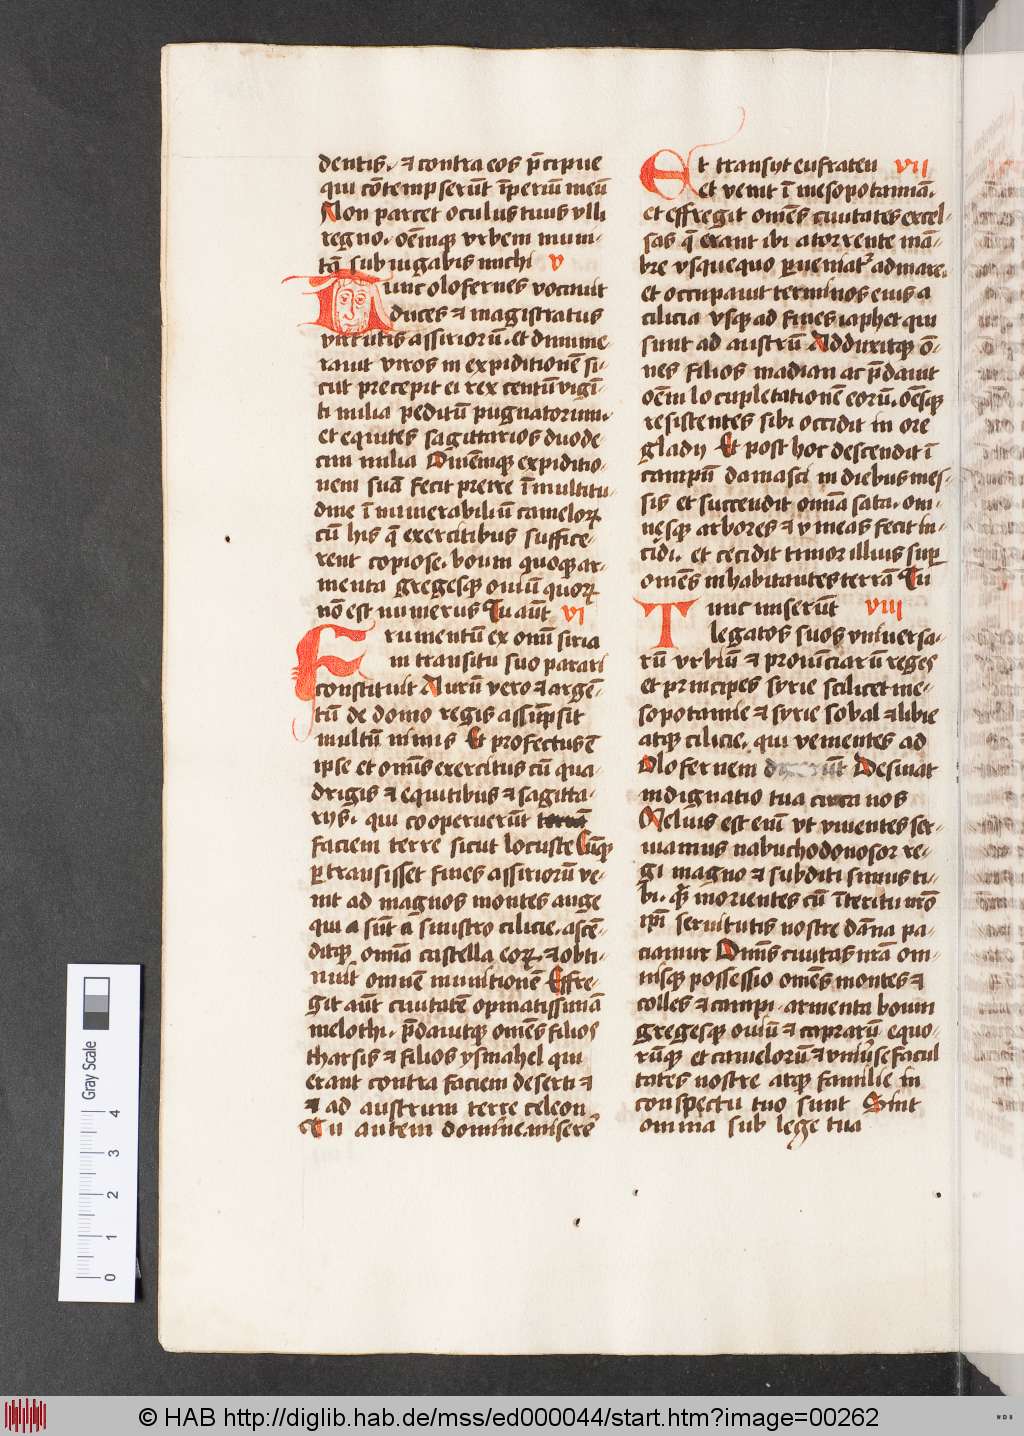 dentis . ⁊ contra eos p̄cipue
qui cōtempserūt īperiū meū
Non parcet oculus tuus vlli
regno . oēmqꝫ vrbem muni-
tā subiugabis michi v
Tunc olofernes vocauit
duces ⁊ magistratus
virtutis assirioꝝ . et dinume
rauit viros in expiditionē si-
cut precepit ei rex centū vigī-
ti milia peditū pugnatorum .
et equites sagittarios duode-
cim milia Omēmqꝫ expiditio-
nem suā fecit preire ī multitu-
dine īnumerabiliū cameloꝝ
cū his q̄ exercitibus suffice-
rent copiose . boum quoqꝫ ar-
menta gregesqꝫ ouiū quoꝝ
nō est numerus Iu aūt vi
Frumentū ex omī siria
in transitu suo parari
constituit Aurū vero ⁊ argē-
tū de domo regis assūpsit
multū nimis Et profectus ē
ipse et omīs exercitus cū qua-
drigis ⁊ equitibus ⁊ sagitta-
rijs . qui cooperuerūt
faciem terre sicut locuste Cūqꝫ
ꝑtransisset fines assirioꝝ ve-
nit ad magnos montes ange
qui a sūt a sinistro cilicie . ascē-
ditqꝫ omīa castella eoꝝ . ⁊ obti-
nuit omnē munitionē Effre-
git aūt ciuitatē opinatissimā
melothi . p̄dauitqꝫ omēs filios
tharsis ⁊ filios ysmahel qui
erant contra faciem deserti ⁊
⁊ ad austrum terre celeon
Tu autem domine . miserē
Et transijt eufraten vii
et venit ī mesopotamiā .
et effregit omēs ciuitates excel-
sas q̄ erant ibi a torrente mā-
bre vsquequo ꝑueniat᷑ ad mare .
et occupauit terminos eius a
cilicia vsqꝫ ad fines iaphet qui
sunt ad austrū Adduxitqꝫ ō-
nes filios madian ac p̄dauit
oēm locupletationē eorū . oēsqꝫ
resistentes sibi occidit in ore
gladij Et post hoc descendit ī
campū damasci in diebus mes-
sis et succendit omīa sata . om-
nesqꝫ arbores ⁊ vineas fecit in-
cidi . et cecidit timor illius suꝑ
omēs inhabitantes terrā Tu
Tunc miserūt viii
legatos suos vniuersa-
rū vrbiū ⁊ prouīciarū reges
et principes syrie scilicet me-
sopotamie ⁊ syrie sobal ⁊ libie
atqꝫ cilicie . qui venientes ad
Olofernem dixerūt Desinat
indignatio tua circa nos
Melius est enī vt viuentes ser-
uiamus nabuchodonosor re-
gi magno ⁊ subditi simus ti-
bi . qꝫ morientes cū īteritu nrō
ip̄i seruitutis nostre dāna pa-
ciamur Omīs ciuitas nrā om-
nisqꝫ possessio omēs montes ⁊
colles ⁊ campi . armenta boum
gregesqꝫ ouiū ⁊ caprarū equo-
rūqꝫ et camelorū ⁊ vniūse facul
tates nostre atqꝫ familie in
conspectu tuo sunt Sint
omnia sub lege tua
Gray Scale
0 1 2 3 4
© HAB http://diglib.hab.de/mss/ed000044/start.htm?image=00262